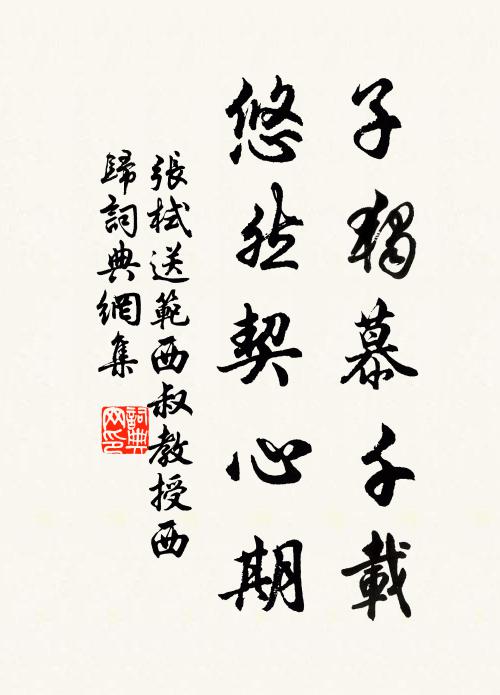 子獨慕千載
悠然契心期
張栻送範西叔教授西
歸詞典網集
詞典
网印